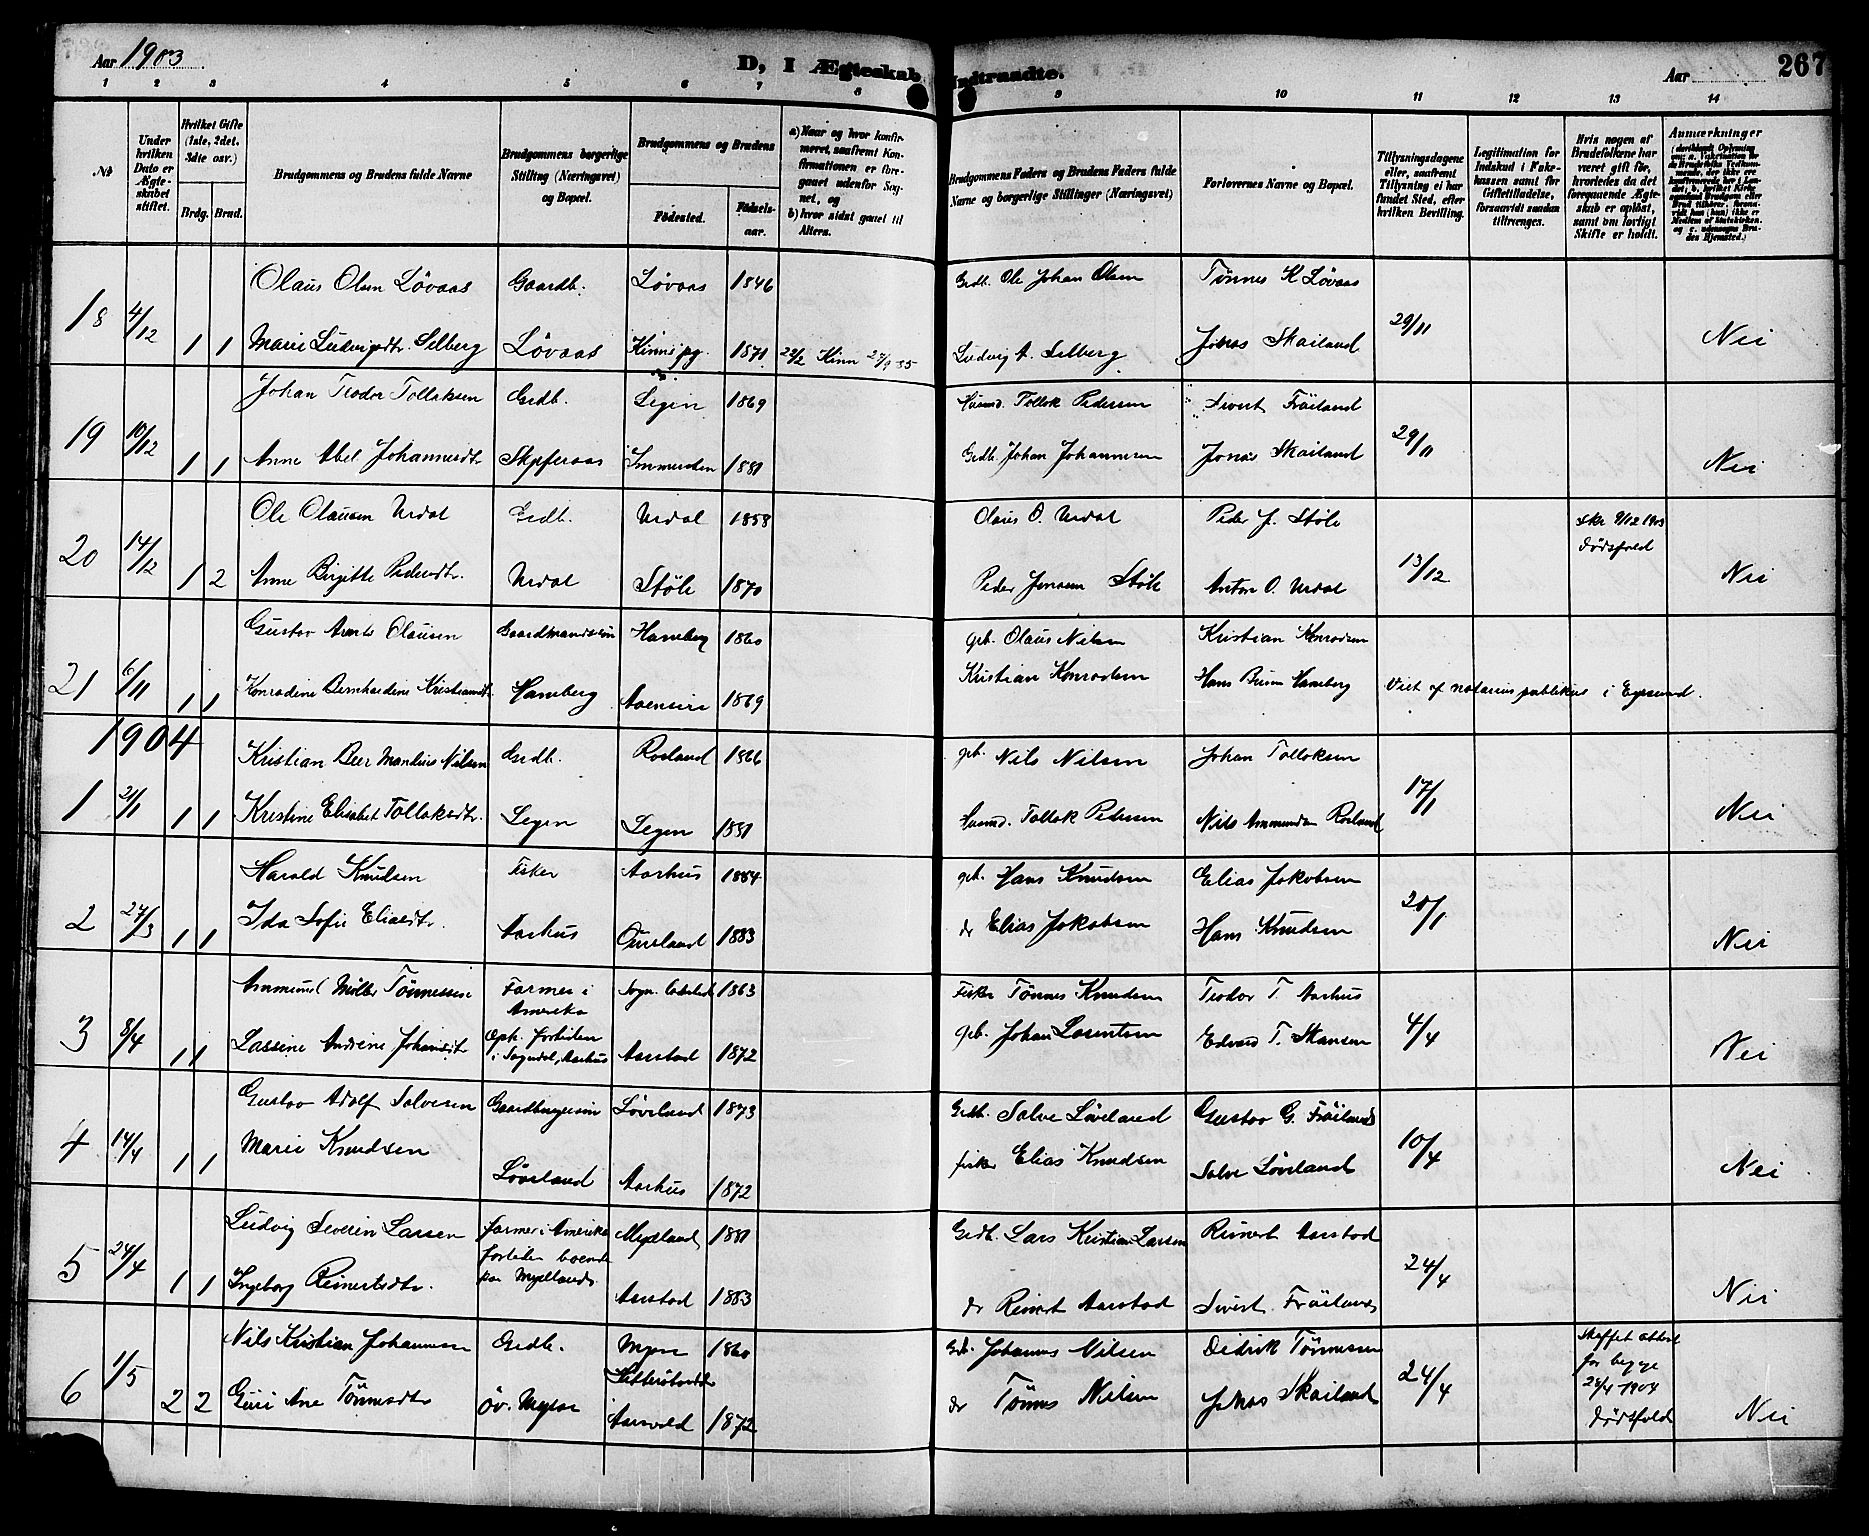 Aar 1903
D, I Ægteskab Indtraadte.
Aar
267
1 2 3 4 5 6 7 8 9 10 11 12 13 14
№
Under hvilken Dato er Ægteskabet stiftet.
Hvilket Gifte (1ste, 2det, 3die osv.)
Brdg. Brud.
Brudgommens og Brudens fulde Navne
Brudgommens borgerlige Stilling (Næringsvei) og Bopæl.
Brudgommens og Brudens
Fødested.
Fødselsaar.
a) Naar og hvor konfirmeret, saafremt Konfirmationen er foregaaet udenfor Sognet, og
b) hvor sidst gaaet til Alters.
Brudgommens Faders og Brudens Faders fulde Navne og borgerlige Stillinger (Næringsvei)
Forlovernes Navne og Bopæl.
Tillysningsdagene eller, saafremt Tillysning ei har fundet Sted, efter hvilken Bevilling.
Legitimation for Indskud i Enkekassen samt for Giftetilladelse, forsaavidt saadan tiltrænges.
Hvis nogen af Brudefolkene har været gift før, hvorledes da det foregaaende Ægteskab er opløst, samt om lovligt Skifte er holdt.
Anmærkninger
18 4/12 1 1
Olaus Olsen Løvaas Gaardb. Løvaas 1846 Grdb. Ole Johan Olsen Tønnes K Løvaas 29/11
Marie Ludvigsdtr. Selberg Løvaas Kinns pg. 1871 Kinn Ludvig A. Selberg Jonas Skailand Nei
19 10/12 1 1
Johan Teodor Tollaksen Grdb. Legin 1869 Husmd. Tollak Pedersen Sivert Frøiland 29/11
Anne Abel Johannesdtr 1881 Grdb. Johan Johannesen Jonas Skailand Nei
20 14/12 1 2
Ole Olausen Urdal Grdb. Urdal 1858 Olaus O. Urdal Peder J. Støle Skr 9/12 1903 Dødsfald
Anne Birgitte Pedersdtr. Urdal Støle 1870 Peder Jensen Støle Anton O. Urdal 13/12 Nei
21 6/11 1 1
Gustav Olausen Gaardmandssøn Hameberg 1860 gb. Olaus Nilsen Kristian Konradsen
Konradine Bernhardine Kristiansdt. Hameberg 1869 Kristian Konradsen Hans Hameberg Viet af notarius publikus i Egersund.
1904
1 21/1 1 1
Kristian Peer Mandius Nilsen Grdb. Rosland 1866 gb. Nils Nilsen Johan Tollaksen 17/1
Kristine Elisabet Tollaksdtr. Legin Legin 1881 Husmd. Tollak Pedersen Nils Ammundsen Rosland Nei
2 27/3 1 1
Harald Knudsen Fisker Aarhus 1884 gb. Hans Knudsen Elias Jakobsen 20/1
Ida Sofie Eliasdtr. Aarhus 1883 do Elias Jakobsen Hans Knudsen Nei
3 8/4 1 1
Ammund Müller Tønnessen Farmer i Amerika Sogn. Ladested 1863 Fisker Tønnes Knudsen Teodor T. Aarhus 4/4
Lassine Andrine Johansdtr Oph. fortiden i Sogndal, Aarhus Aarstad 1872 gb. Johan Larentsen Edvard T. Skansen Nei
4 14/4 1 1
Gustav Adolf Salvesen Gaardbrugersøn Løvland 1873 Grdb. Salve Løveland Gustav G. Frøiland 10/4
Marie Knudsen Løvland Aarhus 1872 fisker Elias Knudsen Salve Løvland Nei
5 24/4 1 1
Ludvig Severin Larsen farmer i Amerika fortiden boende paa Mydland. Mydland 1881 Grdb. Lars Kristian Larsen Reinert Aarstad 24/4
Ingeborg Reinertsdtr. Aarstad 1883 do Reinert Aarstad Sivert Frøiland Nei
6 1/5 2 2
Nils Kristian Johannesen Grdb. Mysse 1860 Grdb. Johannes Nilsen Didrik Tønnessen 24/4 Skiftet attest for begge 28/4 1904 Dødsfald
Guri Ane Tønnesdtr Øv. Mysse 1872 do Tønnes Nilsen Jonas Skailand Nei